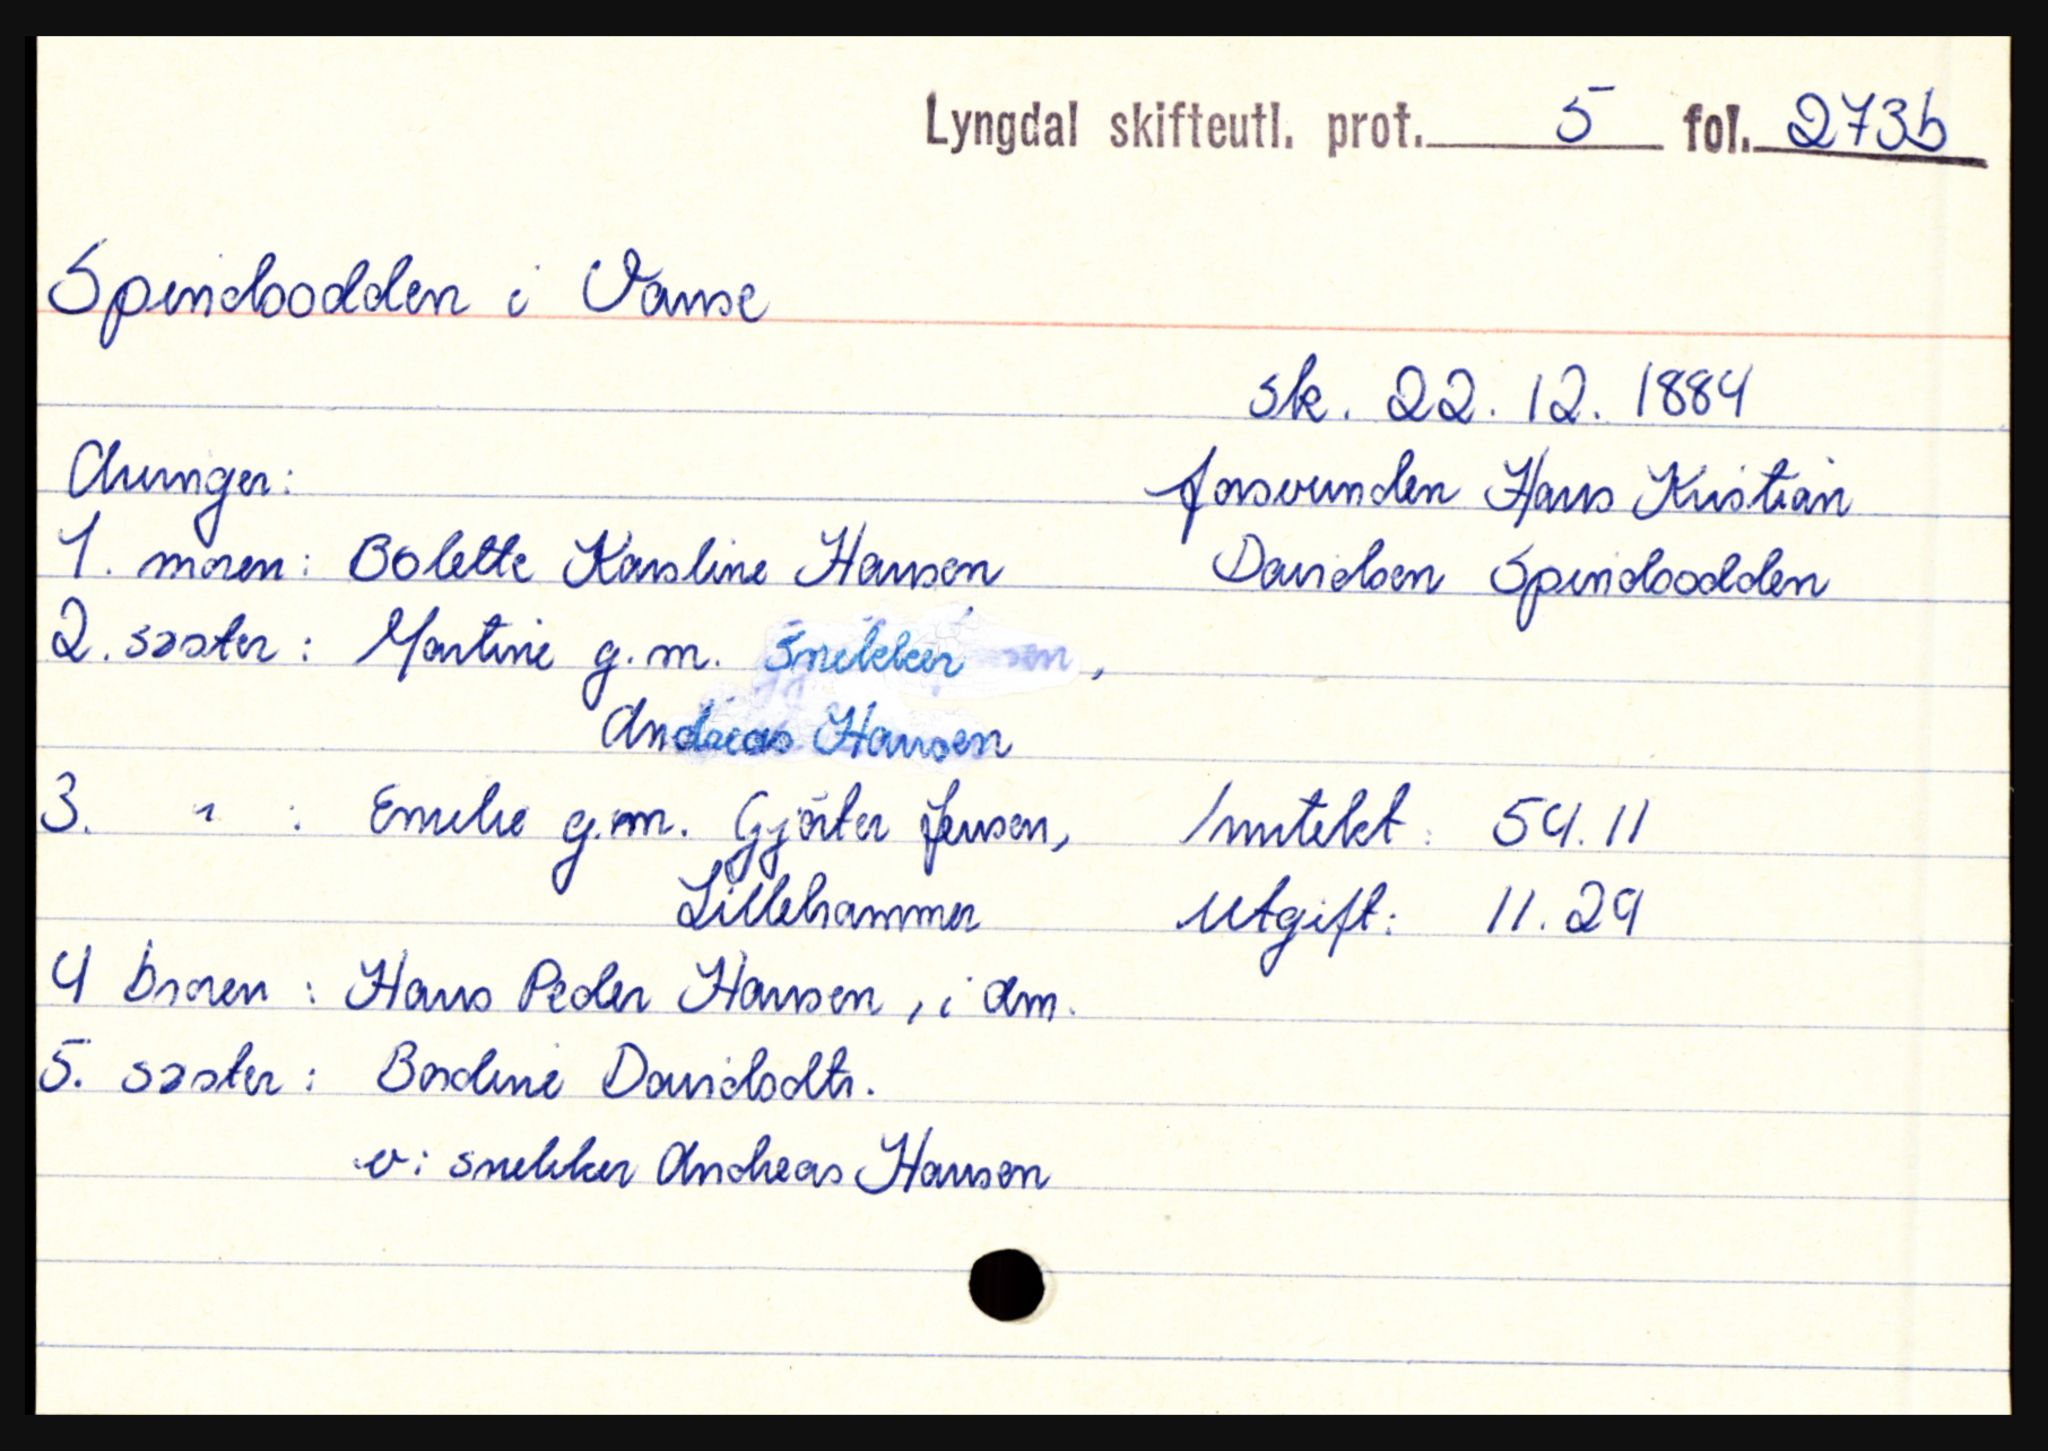 Lyngdal skifteutl. prot. 5 fol. 273b
Spindsodden i Vanse
sk. 22.12.1884
forsvunden Hans Kristian
Davidsen Spindsodden
Arvinger:
1. moren: Bolette Karoline Hansen
2. søster: Martine g.m. Snekker sen,
Andreas Hansen
3. " : Emelie g.m. Gjørtler Jensen,
Lillehammer
Inntekt: 54.11
Utgift: 11.29
4 broren: Hans Peder Hansen, i Am.
5. søster: Bordine Davidsdtr.
v: snekker Andreas Hansen